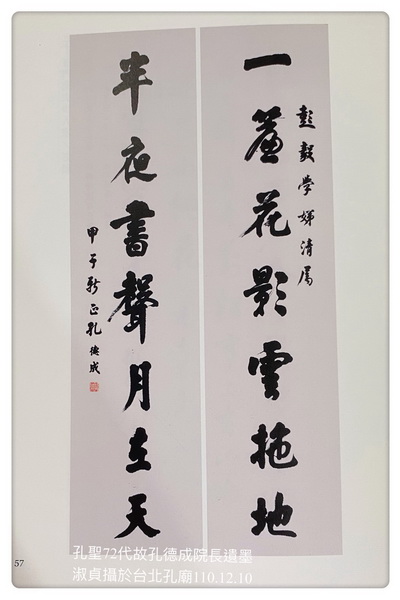 彭毅學娣清屬
一簾花影雲拖地
半夜書聲月在天
甲子新正孔德成
57
孔聖72代故孔德成院長遺墨
淑貞攝於台北孔廟110.12.10